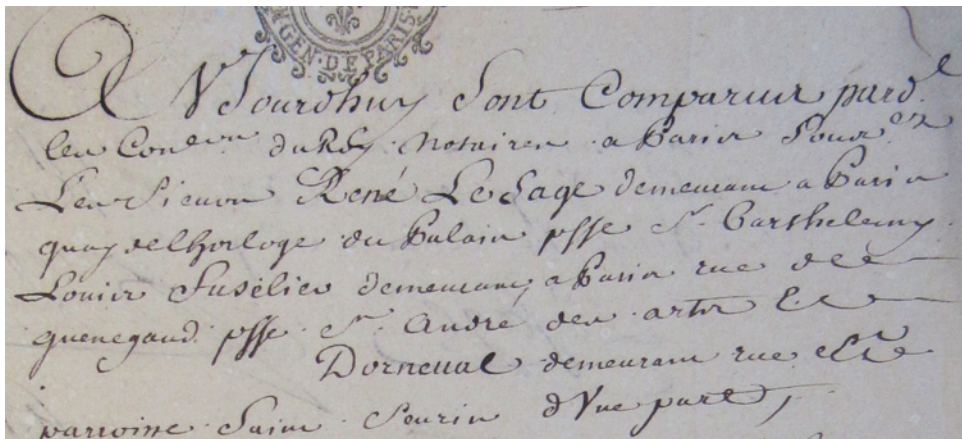 GEN · DE · PARIS
AVJourdhuy Sont Comparus pard.t
les Con.ers du Roy Notaires a Paris Sous.nez
Les Sieurs René Le Sage demeurant a Paris
quay de lhorloge du Palais psse St. Barthelemy
Louis Fuselier demeurant a Paris rue de
guenegaud psse St. André des arts Et
Dorneval demeurant rue
parroisse Saint Seurin dVne part,